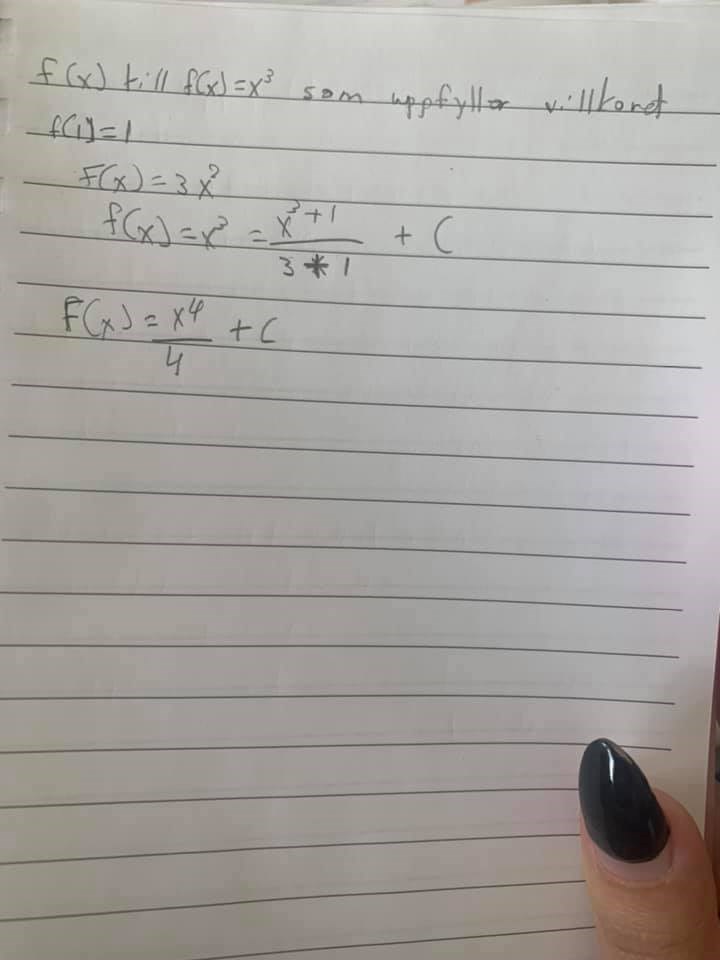 F(x) till f(x)=x³ som uppfyller villkoret
f(1)=1
F(x)=3x²
f(x)=x³ = x³+1 / 3*1 + C
F(x)= x4 / 4 + C